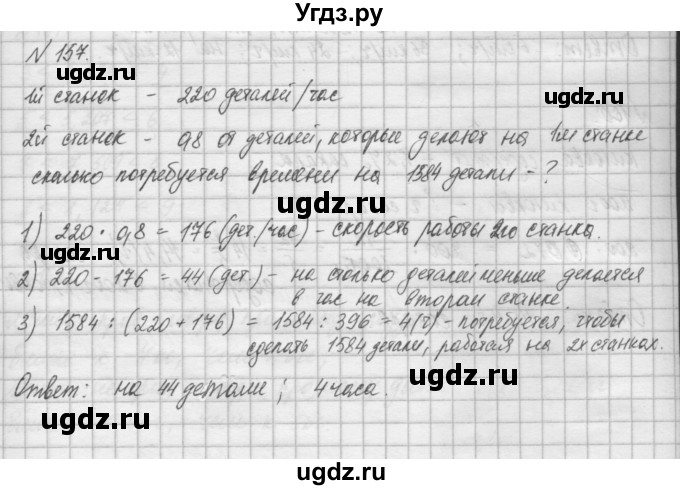 Угдз.ру
N 157.
1й станок - 220 деталей/час
2й станок - 0,8 от деталей, которые делают на 1м станке
сколько потребуется времени на 1584 детали - ?
1) 220 · 0,8 = 176 (дет./час) - скорость работы 2го станка.
2) 220 - 176 = 44 (дет.) - на столько деталей меньше делается
в час на втором станке.
3) 1584 : (220 + 176) = 1584 : 396 = 4 (ч) - потребуется, чтобы
сделать 1584 детали, работая на 2х станках.
Ответ: на 44 детали; 4 часа.
ugdz.ru
ugdz.ru
ugdz.ru
ugdz.ru
ugdz.ru
ugdz.ru
ugdz.ru
ugdz.ru
ugdz.ru
ugdz.ru